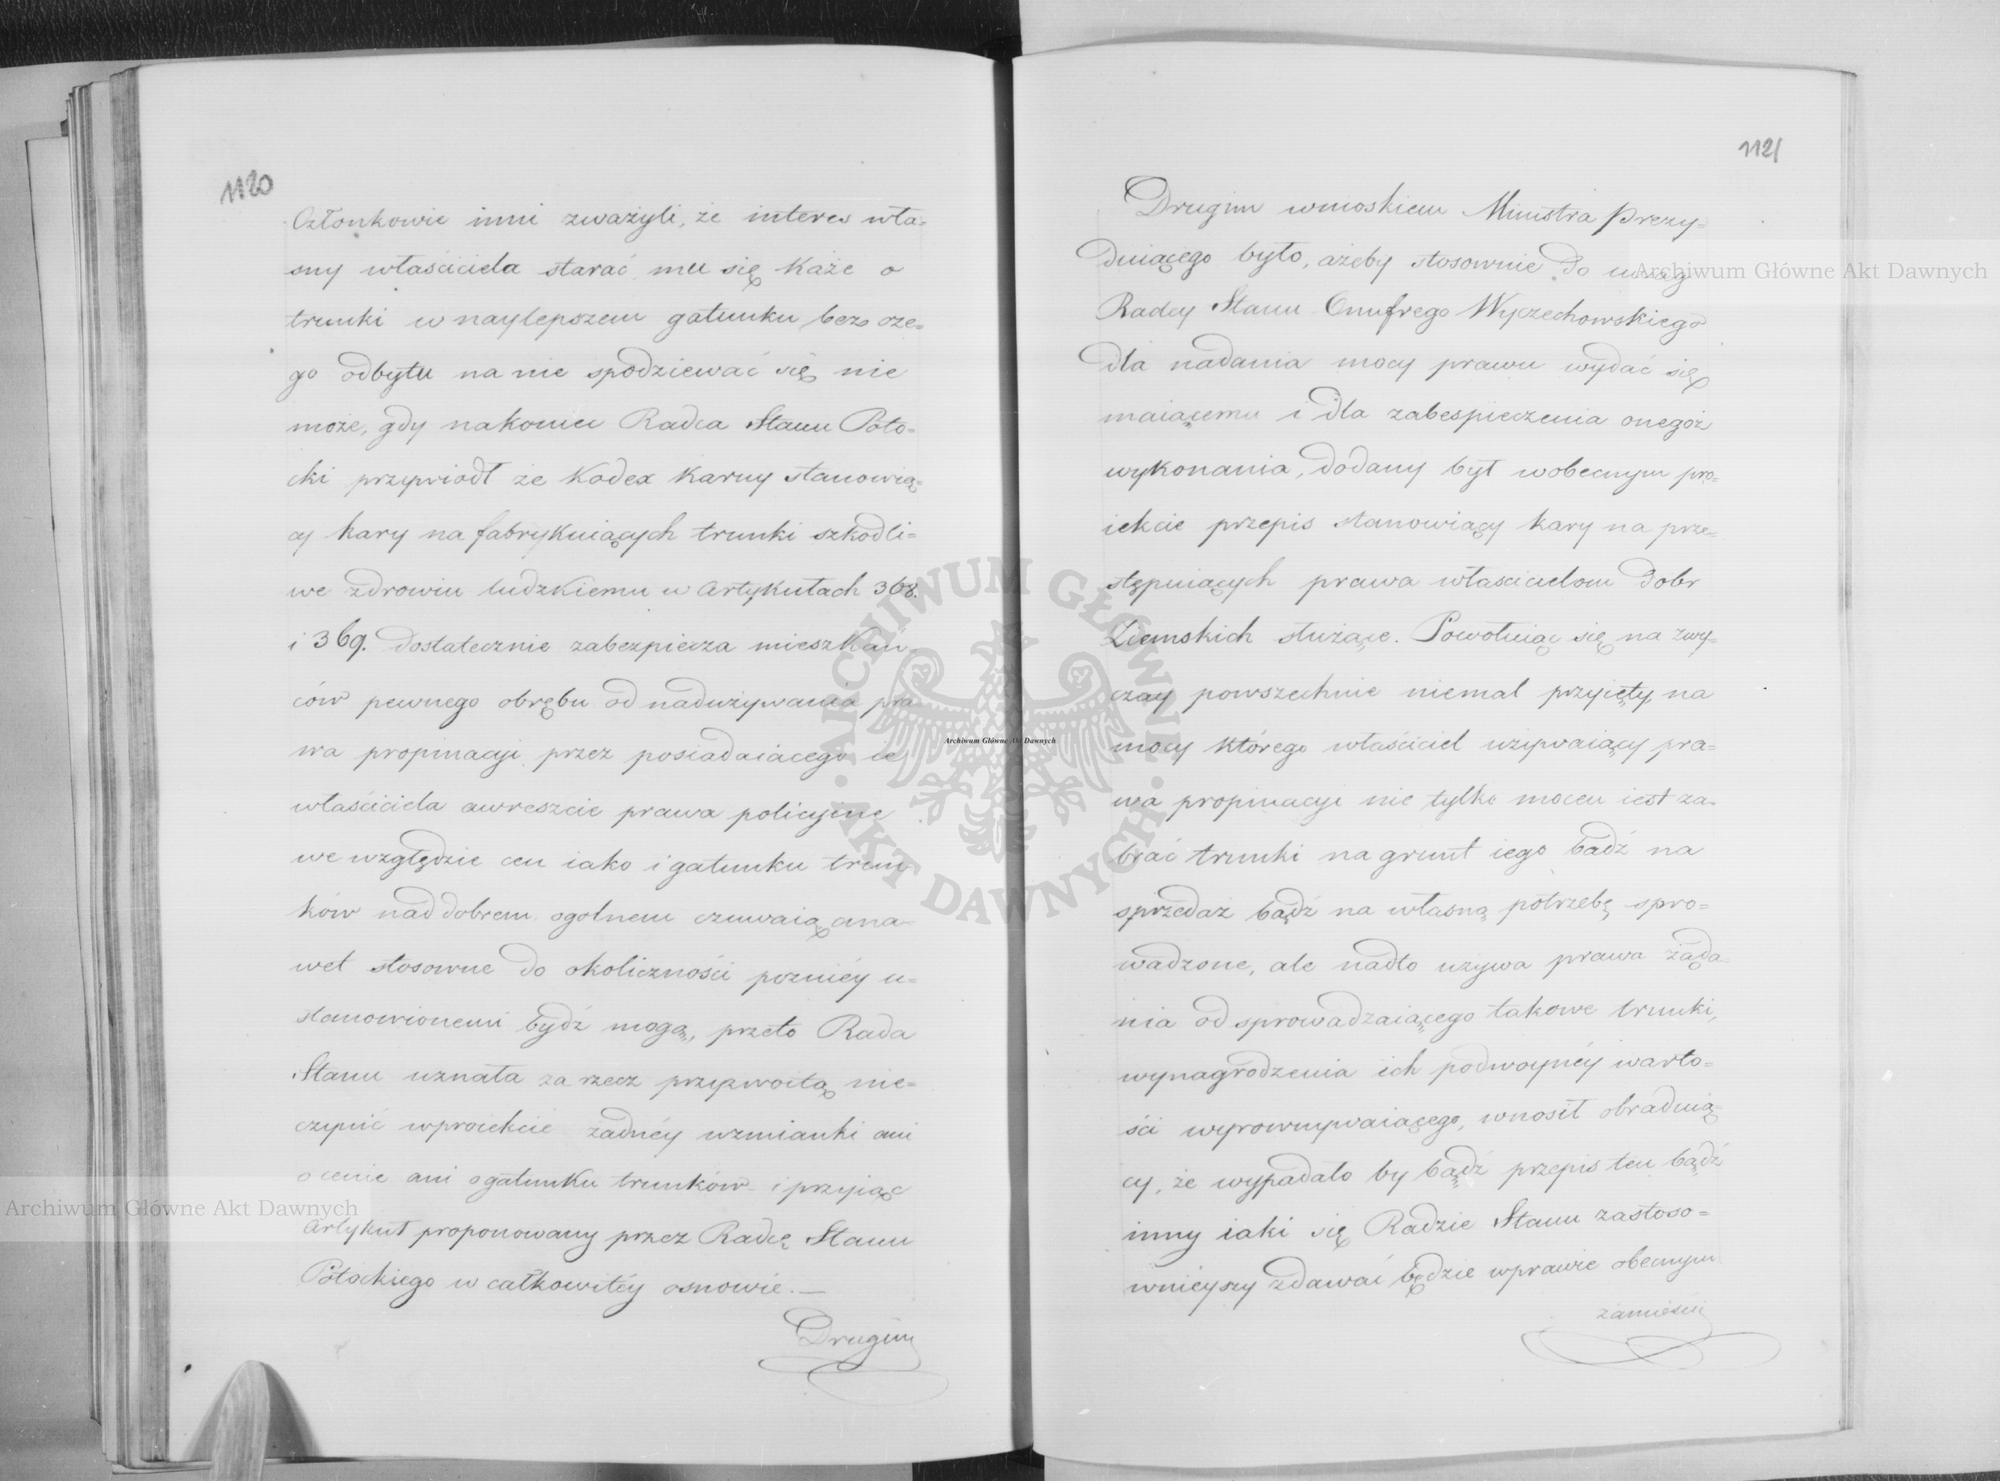 1120
Członkowie inni zważyli, że interes wła-
sny właściciela starać mu się każe o
trunki w naylepszem gatunku bez cze-
go odbytu na nie spodziewać się nie
może, gdy nakoniec Radca Stanu Poto-
cki przywiódł że Kodex Karny stanowią-
cy kary na fabrykuiących trunki szkodli-
we zdrowiu ludzkiemu w Artykułach 368.
i 369. dostatecznie zabezpiecza mieszkań-
ców pewnego obrębu od nadużywania pra-
wa propinacji przez posiadaiącego ie
właściciela awreszcie prawa policyjne
we względzie cen iako i gatunku trun-
ków nad dobrem ogólnem czuwaią ana-
wet stosowne do okoliczności pozniéy u-
stanowionemi bydź mogą, przeto Rada
Stanu uznała za rzecz przyzwoitą nie-
czynić wproiekcie żadnéy wzmianki ani
o cenie ani o gatunku trunków i przyiąć
Artykuł proponowany przez Radcę Stanu
Potockiego w całkowitéy osnowie.—
Drugim
1121
Drugim wnioskiem Ministra Prezy-
duiącego było, ażeby stosownie do uwag
Radcy Stanu Onufrego Wyczechowskiego
dla nadania mocy prawu wydać się
maiącemu i dla zabespieczenia onegóż
wykonania, dodany był wobecnym pro-
iekcie przepis stanowiący kary na prze-
stępuiących prawa właścicielom dobr
Ziemskich służące. Powołuiąc się na zwy-
czay powszechnie niemal przyięty, na
mocy którego właściciel używaiący pra-
wa propinacyi nie tylko mocen iest za-
brać trunki na grunt iego bądź na
sprzedaż bądź na własną potrzebę spro-
wadzone, ale nadto używa prawa żąda-
nia od sprowadzaiącego takowe trunki,
wynagrodzenia ich podwoynéy warto-
ści wyrownywaiącego, wnosił obraduią-
cy, że wypadało by bądź przepis ten bądź
inny iaki się Radzie Stanu zastoso-
wnieyszy zdawać będzie wprawie obecnym
zamieścić
Archiwum Główne Akt Dawnych
Archiwum Główne Akt Dawnych
Archiwum Główne Akt Dawnych
ARCHIWUM GŁÓWNE AKT DAWNYCH